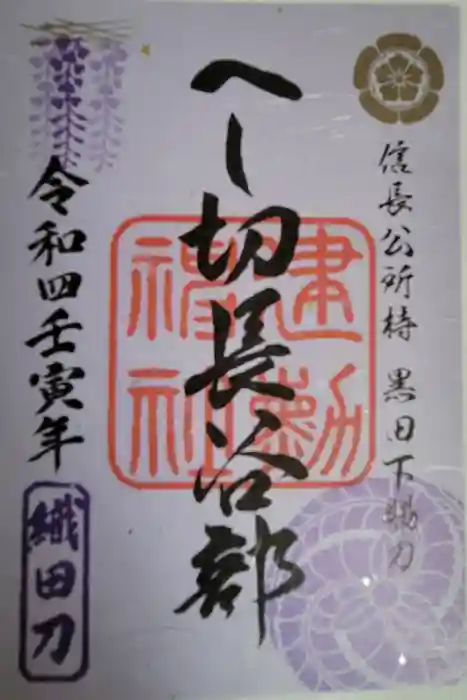 信長公所持 黒田下賜刀
へし切長谷部
建勲神社
令和四壬寅年
織田刀